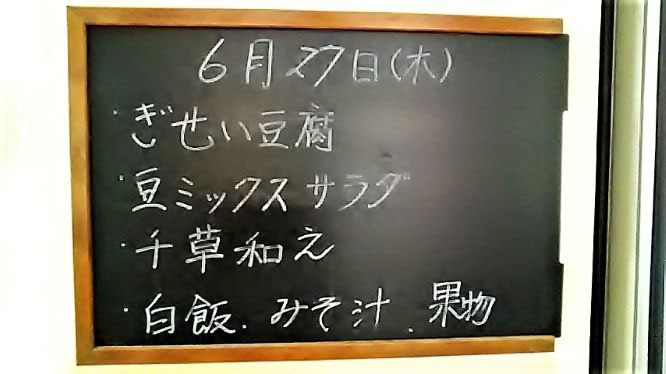 6月27日(木)
・ぎせい豆腐
・豆ミックスサラダ
・千草和え
・白飯.みそ汁.果物